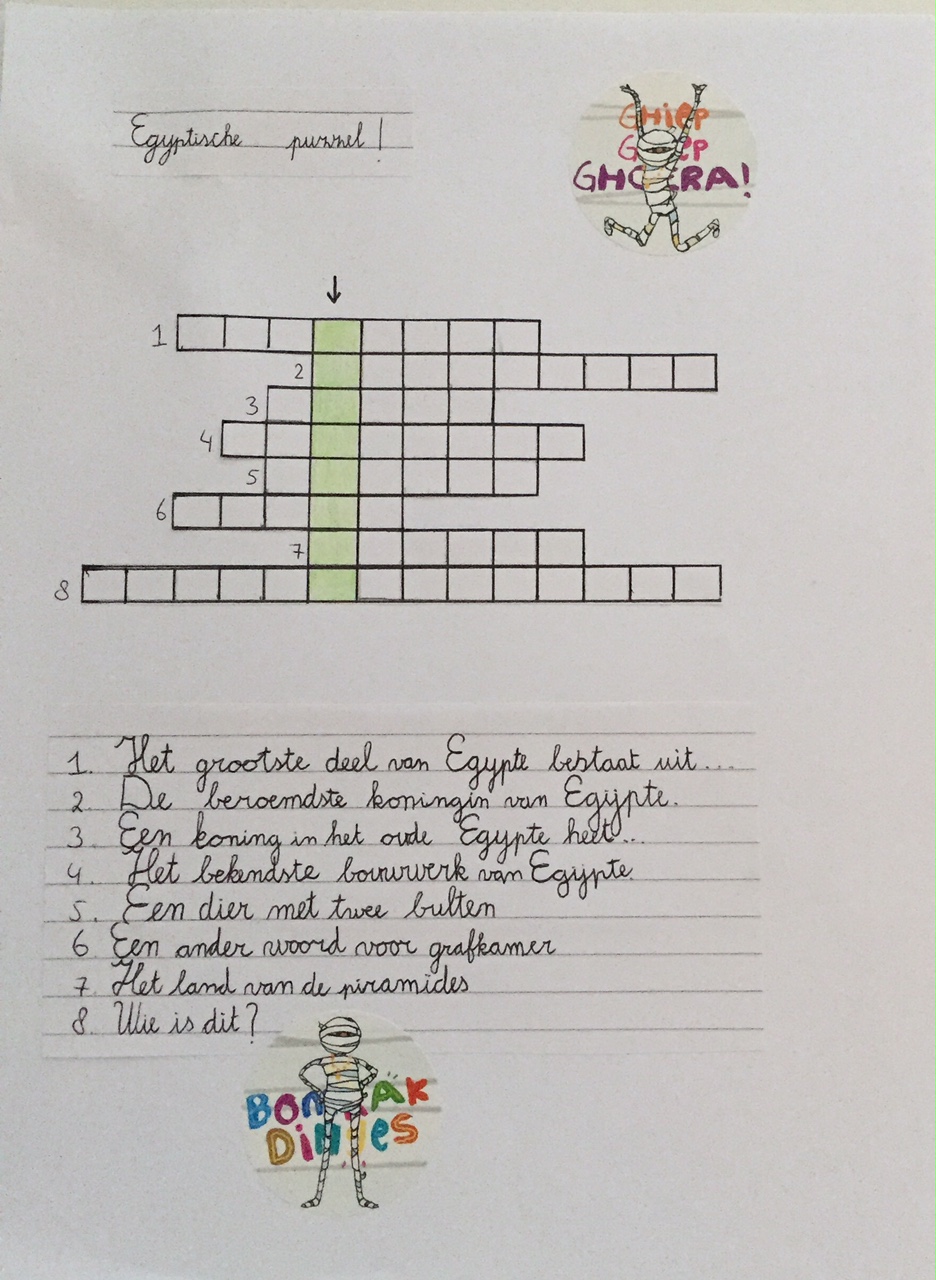 Egyptische puzzel!
GHiep
GHOERA!
1
2
3
4
5
6
7
8
1. Het grootste deel van Egypte bestaat uit...
2. De beroemdste koningin van Egypte.
3. Een koning in het oude Egypte heet...
4. Het bekendste bouwwerk van Egypte.
5. Een dier met twee bulten
6 Een ander woord voor grafkamer
7. Het land van de piramides
8. Wie is dit?